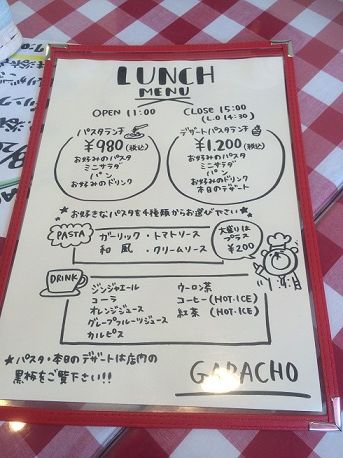 LUNCH
MENU
OPEN 11:00
CLOSE 15:00
(L.O 14:30)
パスタランチ
¥980(税込)
お好みのパスタ
ミニサラダ
パン
お好みのドリンク
デザートパスタランチ
¥1.200(税込)
お好みのパスタ
ミニサラダ
パン
お好みのドリンク
本日のデザート
★お好きなパスタを4種類からお選び下さい★
PASTA
ガーリック・トマトソース
和風・クリームソース
大盛りは
プラス
¥200
DRINK
ジンジャエール
コーラ
オレンジジュース
グレープフルーツジュース
カルピス
ウーロン茶
コーヒー(HOT・ICE)
紅茶(HOT・ICE)
★パスタ・本日のデザートは店内の
黒板をご覧下さい!!
GABACHO